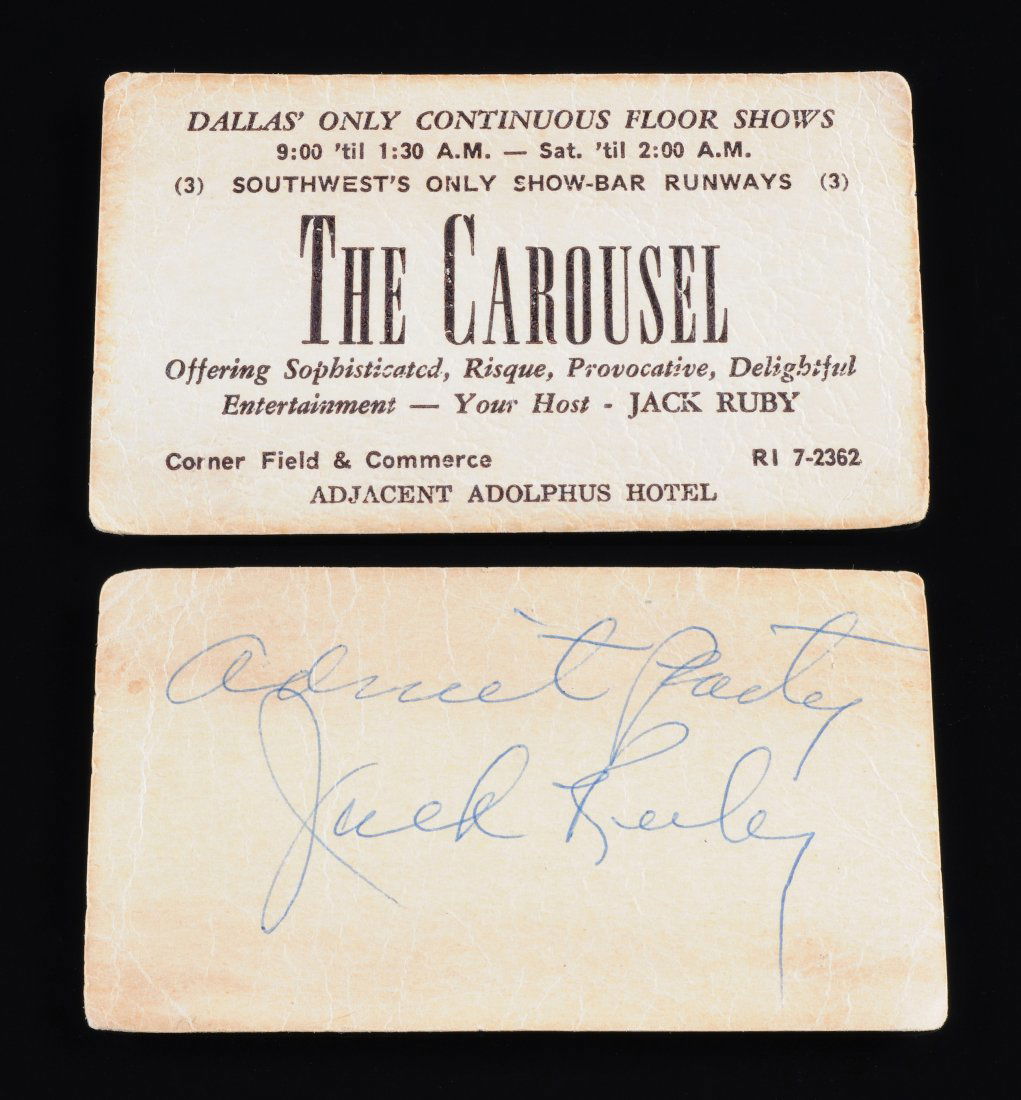 DALLAS' ONLY CONTINUOUS FLOOR SHOWS
9:00 'til 1:30 A.M. — Sat. 'til 2:00 A.M.
(3) SOUTHWEST'S ONLY SHOW-BAR RUNWAYS (3)
THE CAROUSEL
Offering Sophisticated, Risque, Provocative, Delightful
Entertainment — Your Host - JACK RUBY
Corner Field & Commerce RI 7-2362
ADJACENT ADOLPHUS HOTEL
Admit Party
Jack Ruby